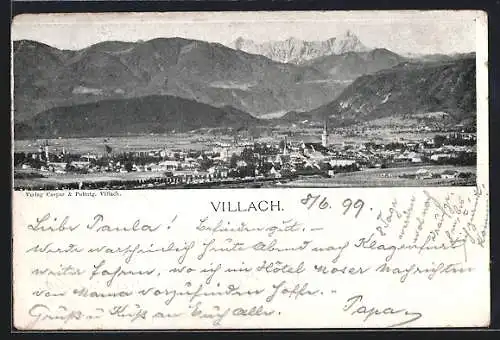 Verlag Caspar & Pullnig, Villach.
VILLACH. 8/6. 99
Liebe Paula! Befinden gut. -
Werde warscheinlich heute Abend nach Klagenfurt
weiter fahren, wo ich im Hôtel Moser Nachrichten
von Mama vorzufinden hoffe. -
Gruß u Kuß an Euch alle. Papa